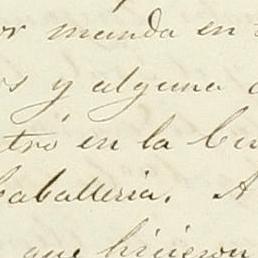 or manda en
os y alguna
tró en la
caballeria. A
que hicieron